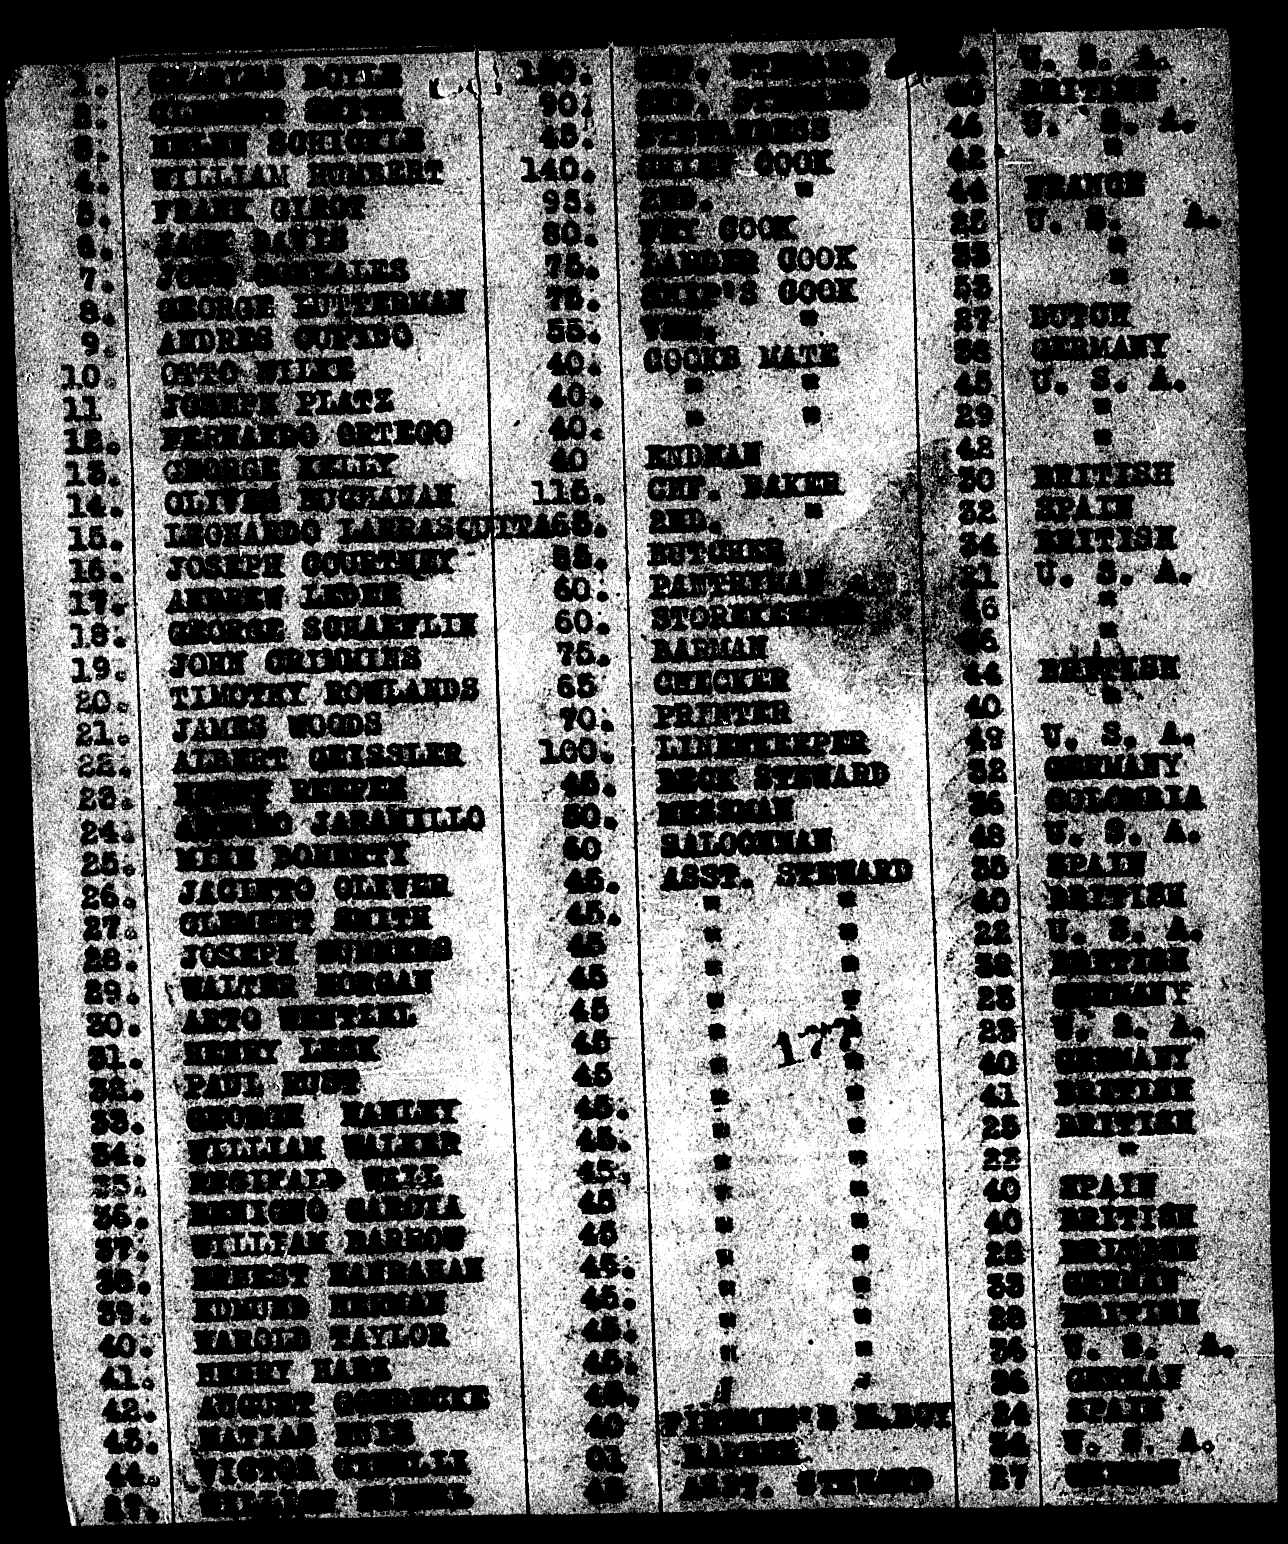 1. CHARLES DOYLE 150. CHF. STEWARD U. S. A.
2. SMITH 90. 2ND. STEWARD 40 BRITISH
3. HELEN SCHICKLE 45. STEWARDESS 44 U. S. A.
4. WILLIAM HUMBERT 140. CHIEF COOK 42. "
5. FRANK GILROY 95. 2ND. " 44 FRANCE
6. JACK DAVIS 80. COOK 25 U. S. A.
7. JOHN GONZALES 75. LARDER COOK 33 "
8. GEORGE LUTTERMAN 75. SHIP'S COOK 55 "
9. ANDRES CUPIDO 55. VEG. " 27 DUTCH
10. OTTO WILKE 40. COOKS MATE 36 GERMANY
11 JOSEPH PLATZ 40. " " 45 U. S. A.
12. FERNANDO ORTEGO 40. " " 29 "
13. GEORGE KELLY 40 42 "
14. OLIVER BUCHANAN 115. CHF. BAKER 30 BRITISH
15. LEONARDO LARRASQUITTA 65. 2ND. " 32 SPAIN
16. JOSEPH COURTNEY 85. BUTCHER 34 BRITISH
17. ANDREW LEDEE 60. PANTRYMAN 21 U. S. A.
18. GEORGE SCHAEFLIN 60. STOREKEEPER 46 "
19. JOHN GRIMMINS 75. BARMAN 46 "
20. TIMOTHY ROWLANDS 65 CHECKER 44 BRITISH
21. JAMES WOODS 70. PRINTER 40 "
22. ALBERT GEISSLER 100. LINENKEEPER 49 U. S. A.
23. HENRY REEPEN 45. DECK STEWARD 32 GERMANY
24. JARAMILLO 50. MESSMAN 36 COLOMBIA
25. MIKE DOHERTY 50 SALOONMAN 48 U. S. A.
26. JACINTO OLIVER 45. ASST. STEWARD 35 SPAIN
27. CLEMENT SMITH 45. " " 40 BRITISH
28. JOSEPH SUMMERS 45 " " 22 U. S. A.
29. WALTER MORGAN 45 " " 38 BRITISH
30. ANTO WENTZEL 45 " " 25 GERMANY
31. HENRY LESK 45 " " 23 U. S. A.
177
32. PAUL RUST 45 " " 40 GERMANY
33. GEORGE HANLEY 45. " " 41 BRITISH
34. WILLIAM WALKER 45. " " 25 BRITISH
35. REGINALD WALL 45. " " 22 "
36. BENIGNO GARCIA 45 " " 40 SPAIN
37. WILLIAM BARROW 45 " " 40 BRITISH
38. ERNEST HANRAHAN 45. " " 28 BRITISH
39. EDMUND 45. " " 33 GERMAN
40. HAROLD TAYLOR 45. " " 28 BRITISH
41. HENRY HARK 45. " " 36 U. S. A.
42. AUGUST GOEDECKE 45. " " 26 GERMAN
43. MATIAS RUIZ 40 FIREMEN'S M.BOY 34 SPAIN
44. VICTOR 01 BARBER. 34 U. S. A.
WILLIAM 45 ASST. STEWARD 27 GERMAN